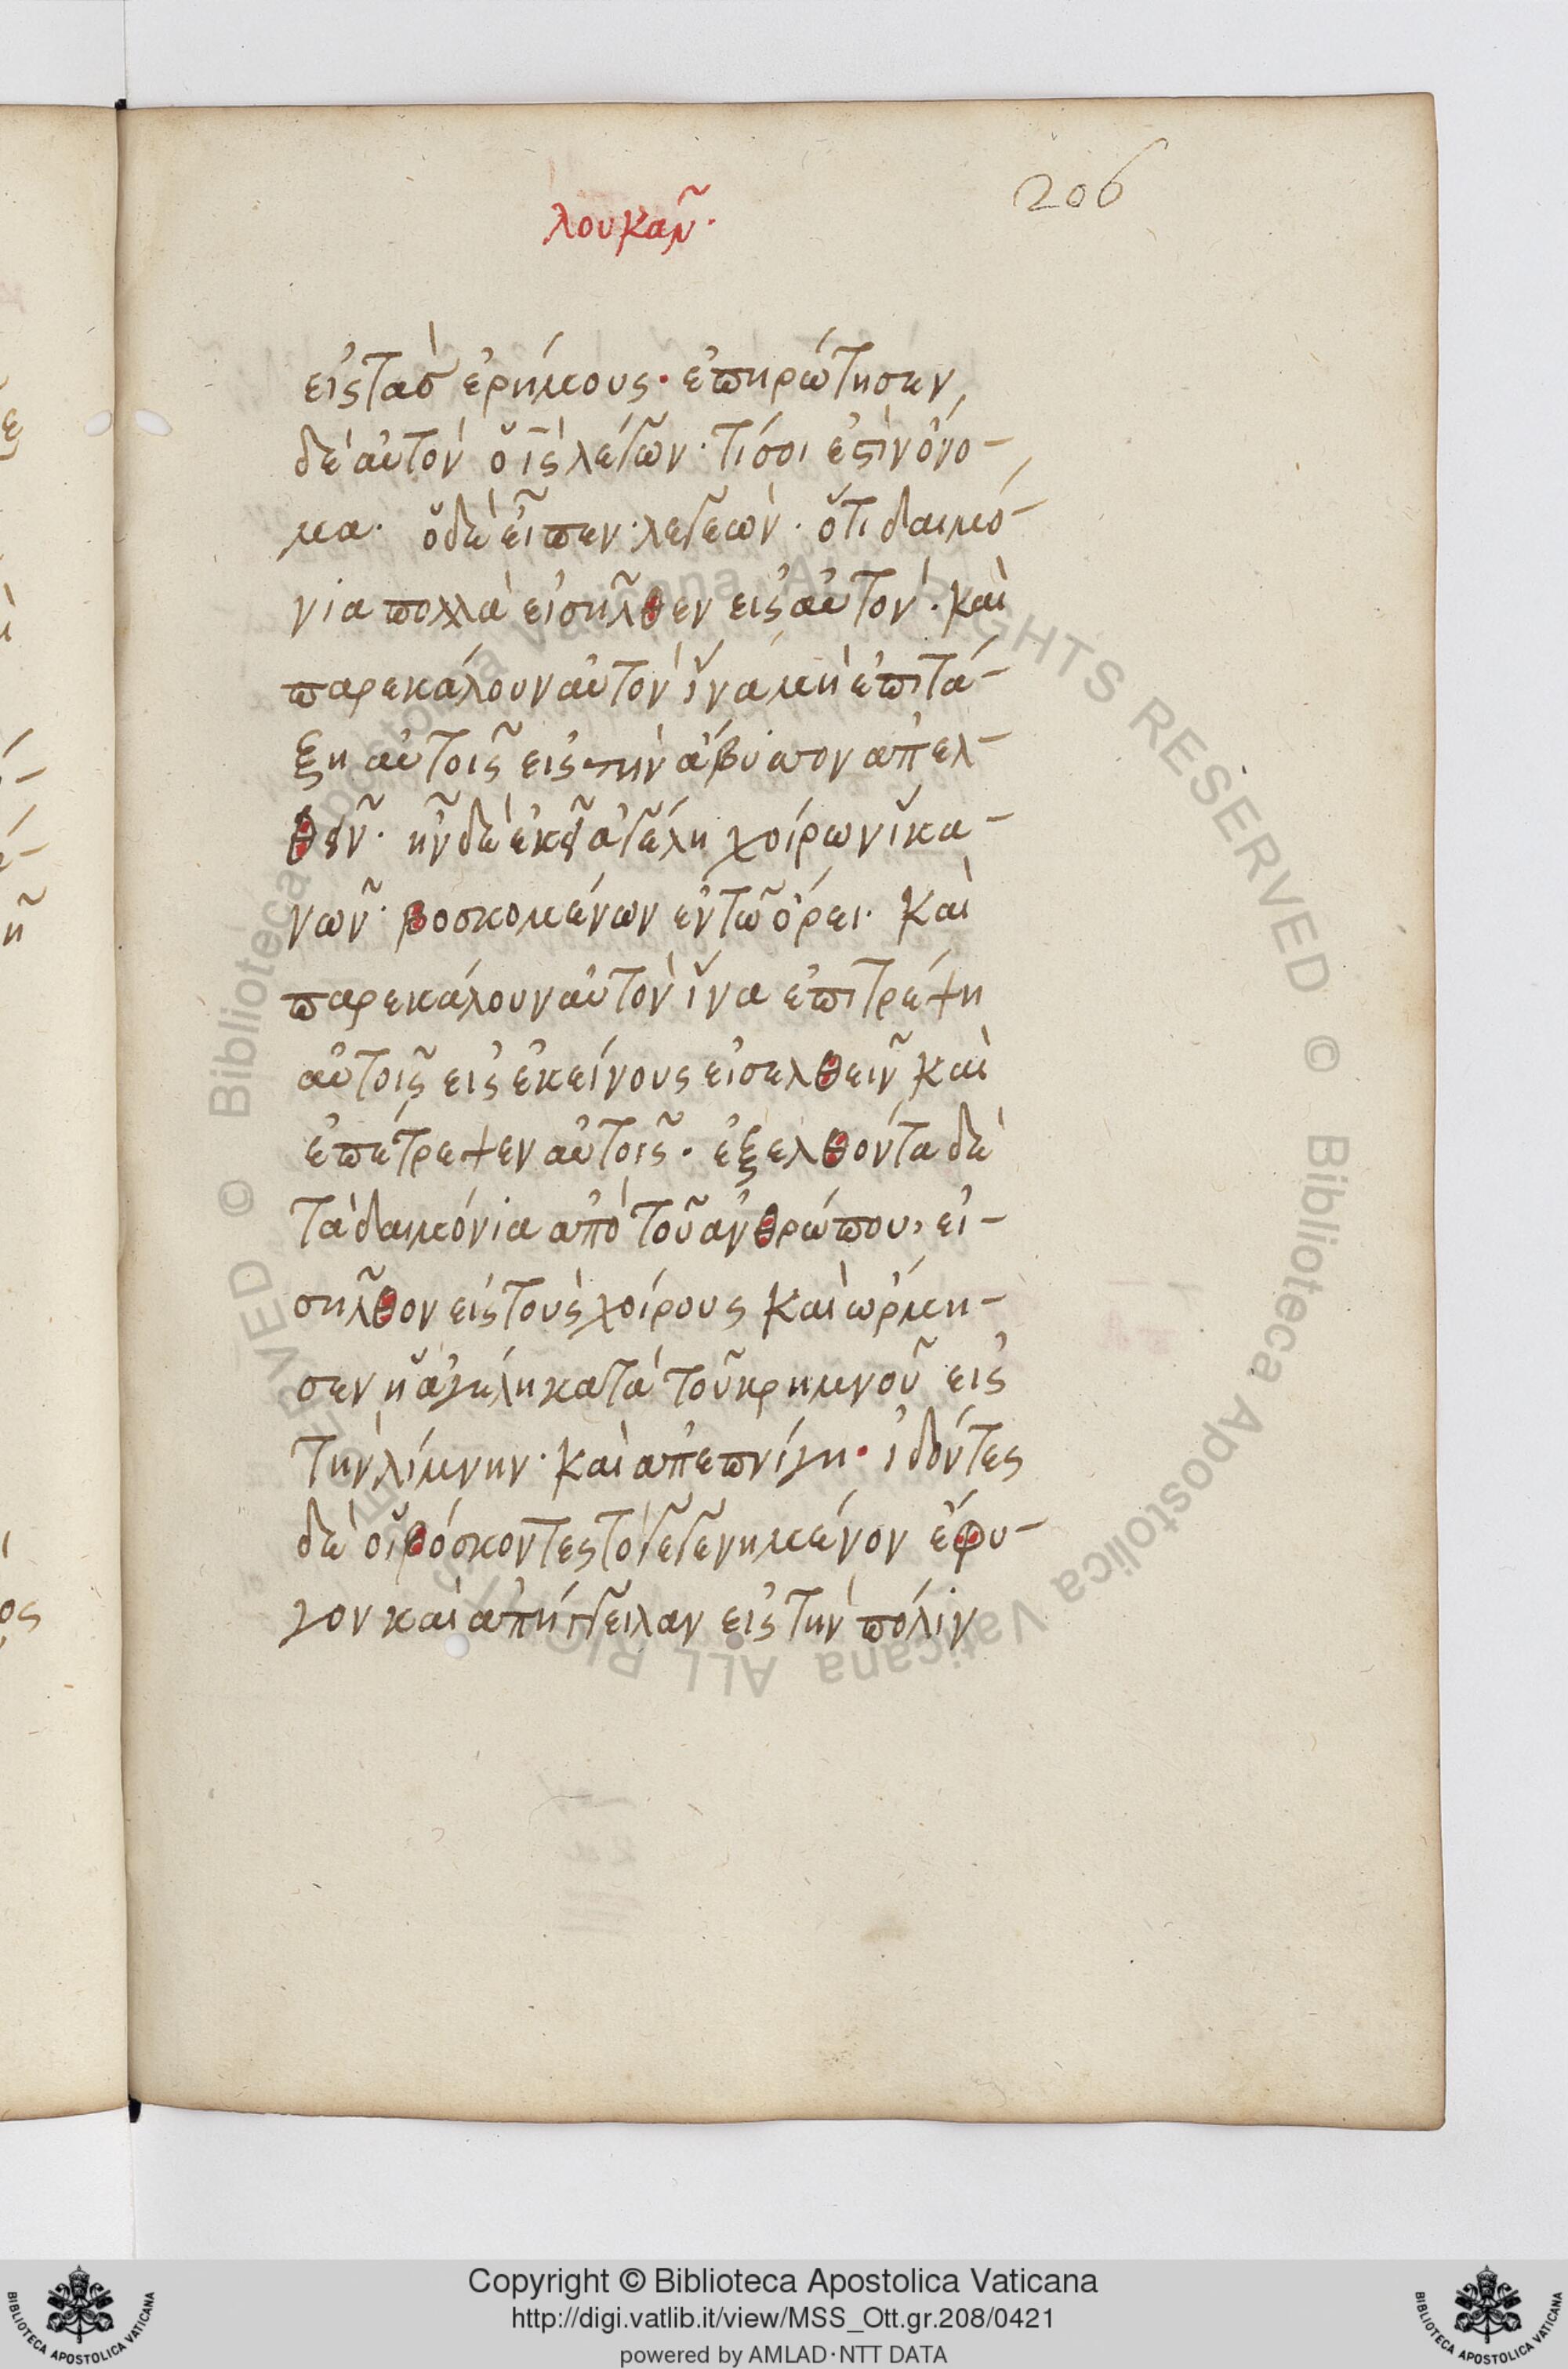 206
λουκᾶν·
εἰς τὰσ ἐρήμους· ἐπηρώτησεν
δὲ αὐτὸν ὁ ις̄ λέγων· τί σοι ἐστὶν ὄνο-
μα· ὁ δὲ εἶπεν· λεγεών· ὅτι δαιμό-
νια πολλὰ εἰσῆλθεν εἰς αὐτόν· καὶ
παρεκάλουν αὐτὸν ἵνα μὴ ἐπιτά-
ξη αὐτοῖς εἰς τὴν ἄβυσσον ἀπελ-
θεῖν· ἦν δὲ ἐκεῖ ἀγέλη χοίρων ἱκα-
νῶν· βοσκομένων ἐν τῶ ὄρει· καὶ
παρεκάλουν αὐτὸν ἵνα ἐπιτρέψη
αὐτοῖς εἰς ἐκείνους εἰσελθεῖν καὶ
ἐπέτρεψεν αὐτοῖς· ἐξελθόντα δὲ
τὰ δαιμόνια ἀπὸ τοῦ ἀνθρώπου, εἰ-
σῆλθον εἰς τοὺς χοίρους καὶ ὥρμη-
σεν ἡ ἀγέλη κατὰ τοῦ κρημνοῦ εἰς
τὴν λίμνην· καὶ ἀπεπνίγη· ἰδόντες
δὲ οἱ βόσκοντες τὸ γεγενημένον ἔφυ-
γον καὶ ἀπήγγειλαν εἰς τὴν πόλιν
© Biblioteca Apostolica Vaticana ALL RIGHTS RESERVED © Biblioteca Apostolica Vaticana ALL RIGHTS RESERVED
BIBLIOTECA APOSTOLICA VATICANA
Copyright © Biblioteca Apostolica Vaticana
http://digi.vatlib.it/view/MSS_Ott.gr.208/0421
powered by AMLAD·NTT DATA
BIBLIOTECA APOSTOLICA VATICANA